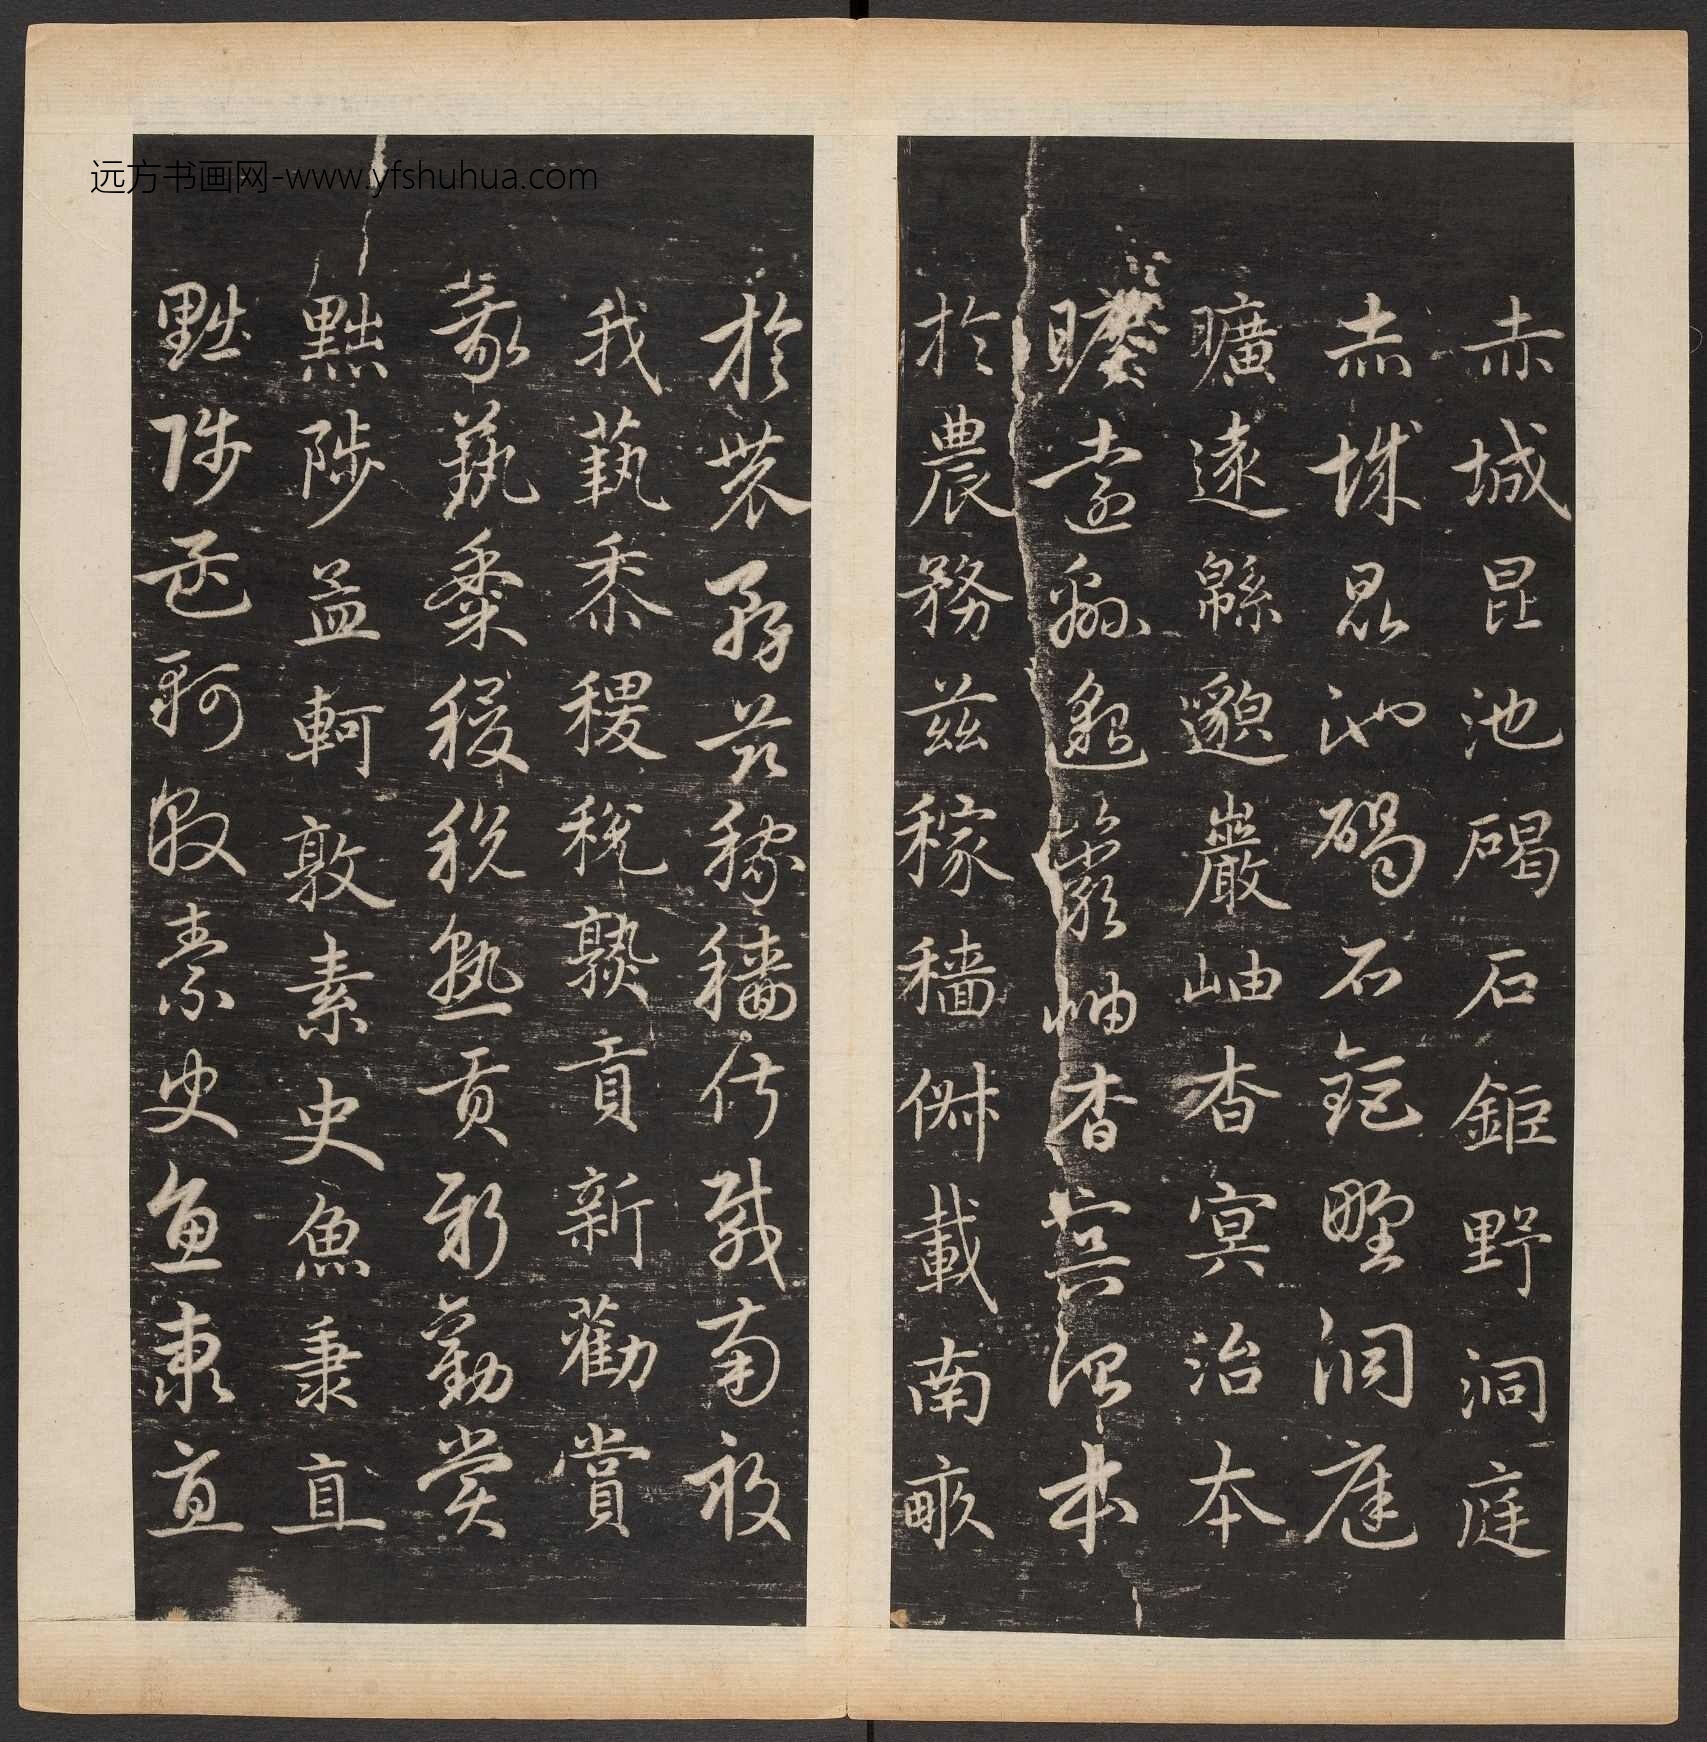 赤城昆池碣石鉅野洞庭
赤城昆池碣石鉅野洞庭
曠遠緜邈巖岫杳冥治本
曠遠緜邈巖岫杳冥治本
於農務茲稼穡俶載南畝
於農務茲稼穡俶載南畝
我藝黍稷稅熟貢新勸賞
我藝黍稷稅熟貢新勸賞
黜陟孟軻敦素史魚秉直
黜陟孟軻敦素史魚秉直
远方书画网-www.yfshuhua.com